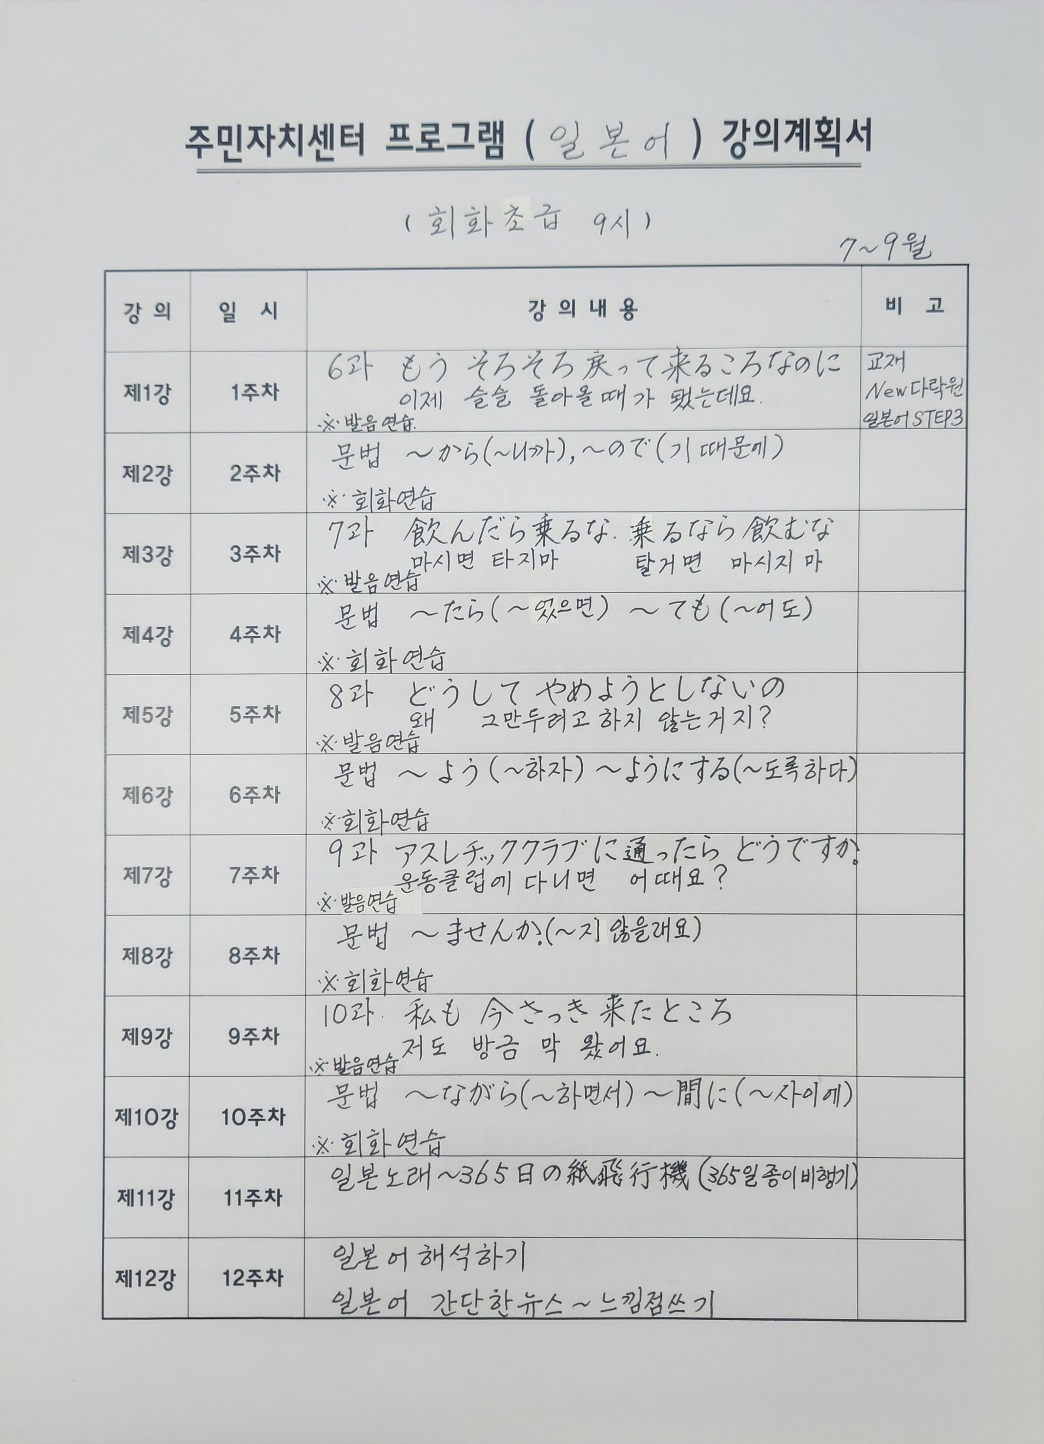 주민자치센터 프로그램 (일본어) 강의계획서
(회화초급 9시)
7~9월
강의 일시 강의내용 비고
제1강 1주차 6과 もう そろそろ 戻って来るころなのに 교재
이제 슬슬 돌아올때가 됐는데요. New다락원
※발음연습. 일본어STEP3
제2강 2주차 문법 ~から(~니까), ~ので(기 때문에)
※회화연습
제3강 3주차 7과 飲んだら乗るな. 乗るなら飲むな
마시면 타지마 탈거면 마시지마
※발음연습
제4강 4주차 문법 ~たら(~었으면) ~ても(~어도)
※회화연습
제5강 5주차 8과 どうして やめようとしないの
왜 그만두려고 하지 않는거지?
※발음연습
제6강 6주차 문법 ~よう(~하자) ~ようにする(~도록하다)
※회화연습
제7강 7주차 9과 アスレチッククラブに通ったら どうですか?
운동클럽에 다니면 어때요?
※발음연습
제8강 8주차 문법 ~ませんか?(~지 않을래요)
※회화연습
제9강 9주차 10과. 私も 今さっき 来たところ
저도 방금 막 왔어요.
※발음연습
제10강 10주차 문법 ~ながら(~하면서) ~間に(~사이에)
※회화연습
제11강 11주차 일본노래~365日の紙飛行機(365일종이비행기)
제12강 12주차 일본어해석하기
일본어 간단한뉴스~느낌점쓰기